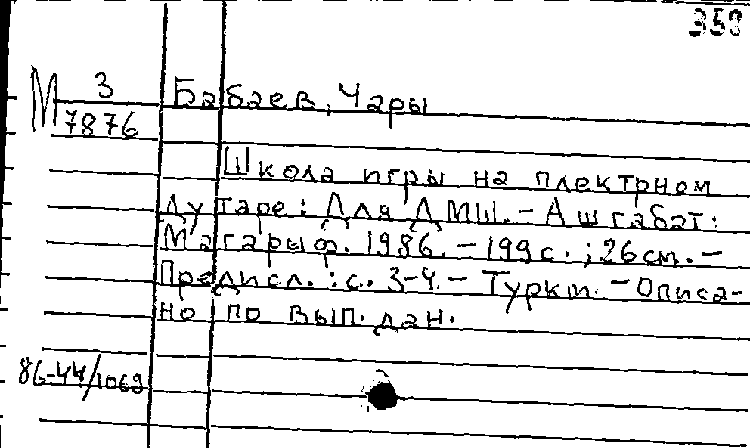 353
М 3
7876
Бабаев, Чары
Школа игры на плектрном
дутаре: Для ДМШ. - Ашгабат:
Магарыф. 1986. - 199 с. ; 26 см. -
Предисл.: с. 3-4. - Туркм. - Описа-
но по вып. дан.
86-44/1069